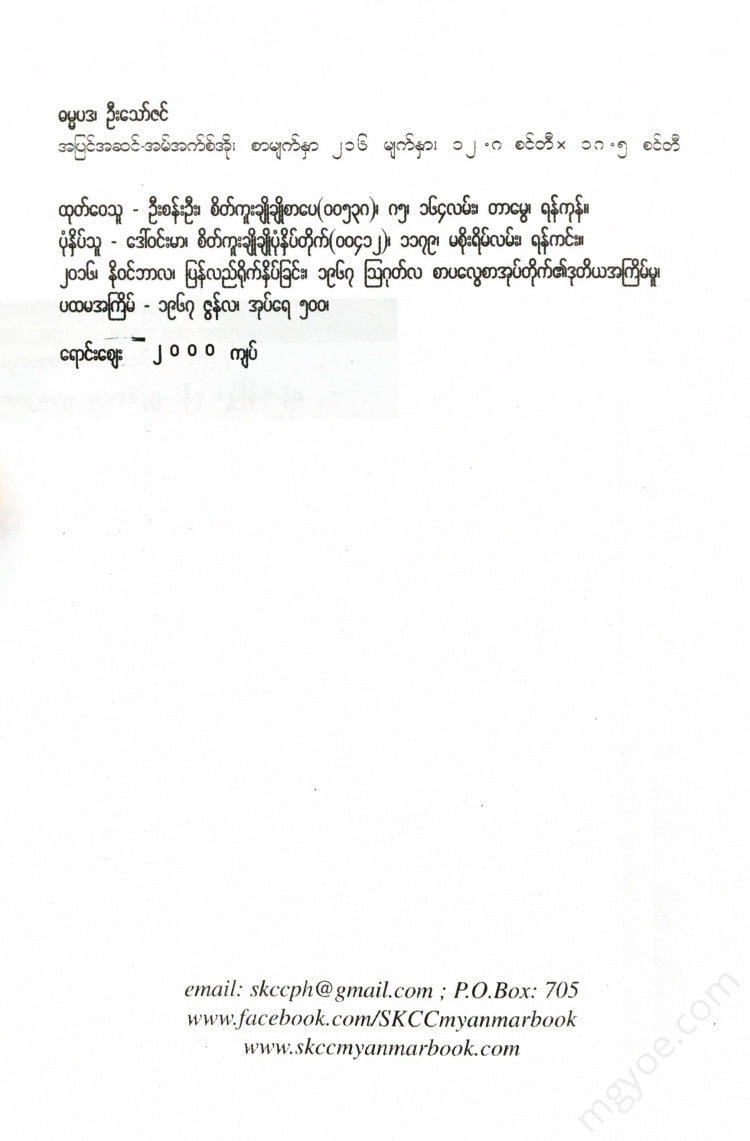 ဓမ္မပဒ၊ ဦးသော်ဇင်
အပြင်အဆင်-အမ်အက်စ်အို၊ စာမျက်နှာ ၂၁၆ မျက်နှာ၊ ၁၂.၈ စင်တီ× ၁၈.၅ စင်တီ
ထုတ်ဝေသူ - ဦးစန်းဦး၊ စိတ်ကူးချိုချိုစာပေ(၀၀၅၃၈)၊ ၈၅၊ ၁၆၄လမ်း၊ တာမွေ၊ ရန်ကုန်။
ပုံနှိပ်သူ - ဒေါ်ဝင်းမာ၊ စိတ်ကူးချိုချိုပုံနှိပ်တိုက်(၀၀၄၁၂)၊ ၁၁၇၉၊ မစိုးရိမ်လမ်း၊ ရန်ကင်း။
၂၀၁၆၊ နိုဝင်ဘာလ၊ ပြန်လည်ရိုက်နှိပ်ခြင်း၊ ၁၉၆၇ ဩဂုတ်လ စာပလွေစာအုပ်တိုက်၏ဒုတိယအကြိမ်မူ၊
ပထမအကြိမ် - ၁၉၆၇ ဇွန်လ၊ အုပ်ရေ ၅၀၀၊
ရောင်းဈေး - ၂၀၀၀ ကျပ်
email: skccph@gmail.com ; P.O.Box: 705
www.facebook.com/SKCCmyanmarbook
www.skccmyanmarbook.com
mgyoe.com